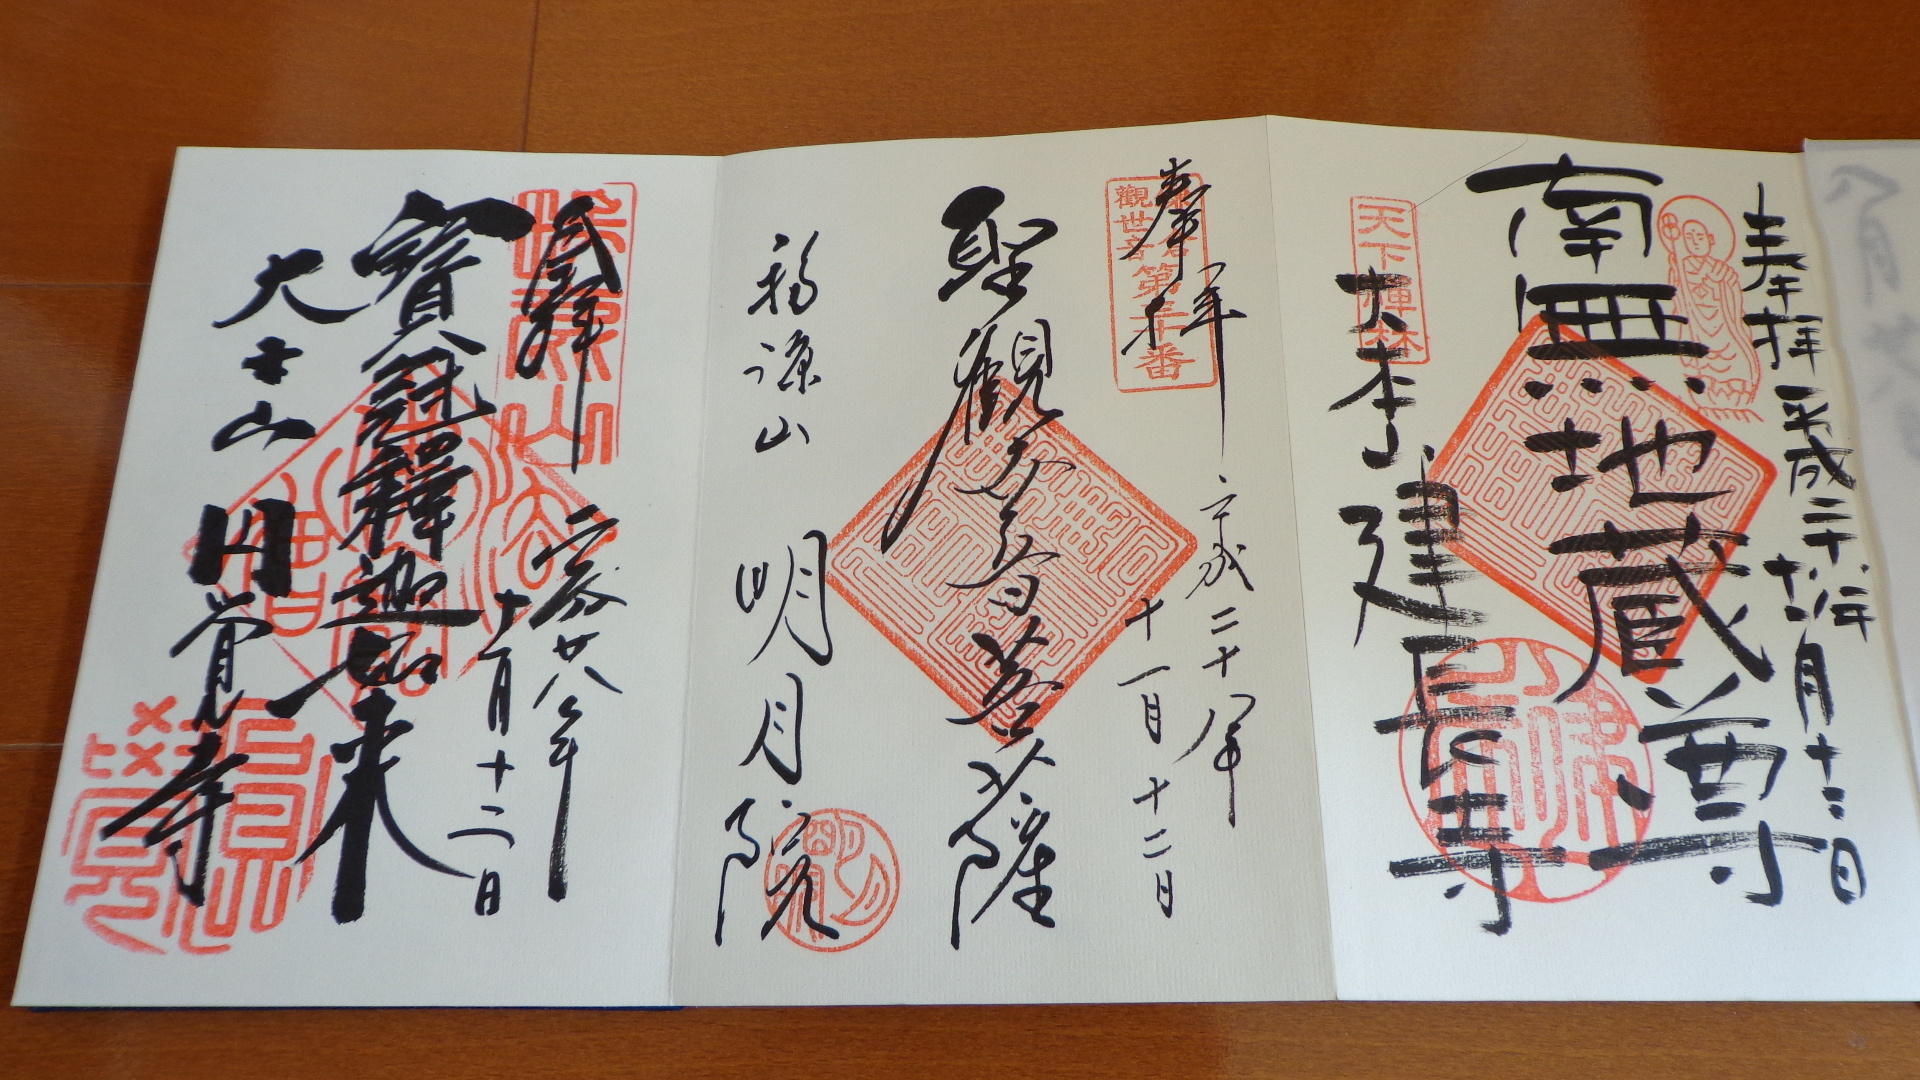 奉拝 平成二十八年
十一月十二日
南無地蔵尊
天下禪林
大本山 建長寺
奉拝 平成二十八年
十一月十二日
鎌倉
觀世音 第三十番
聖觀世音菩薩
福源山 明月院
奉拝 平成廿八年
十一月十二日
瑞鹿山
寶冠釋迦如来
大本山 円覚寺